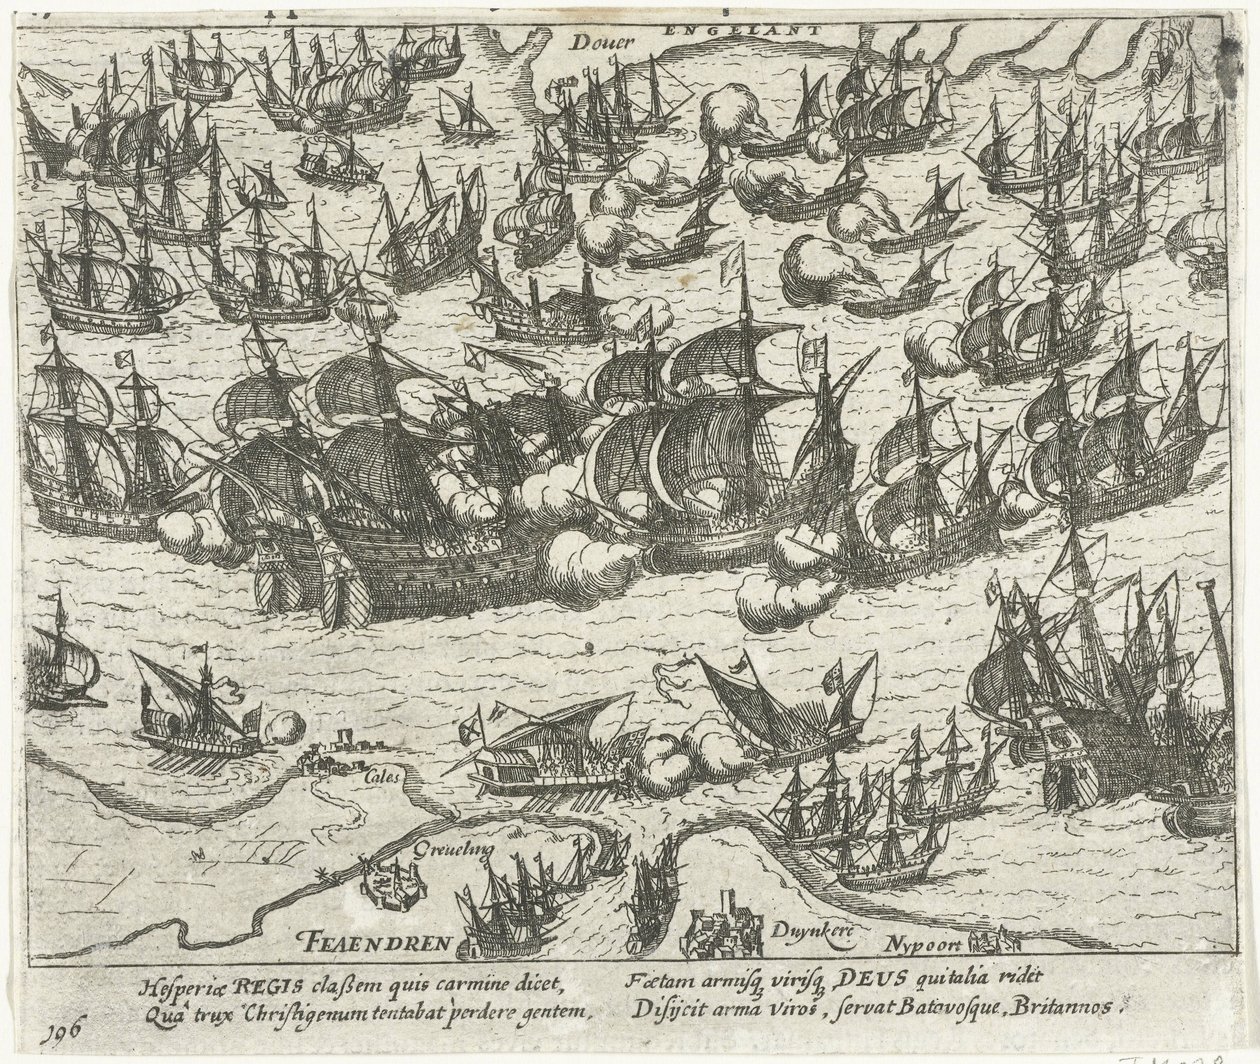 ENGELANT
Douer
Cales
Greueling
FEAENDREN
Duynkerc
Nypoort
Hesperiæ REGIS claßem quis carmine dicet,
Quâ trux Christigenum tentabat perdere gentem,
Fœtam armisq virisq, DEUS qui talia ridet
Disijcit arma viros, servat Batavosque, Britannos.
196